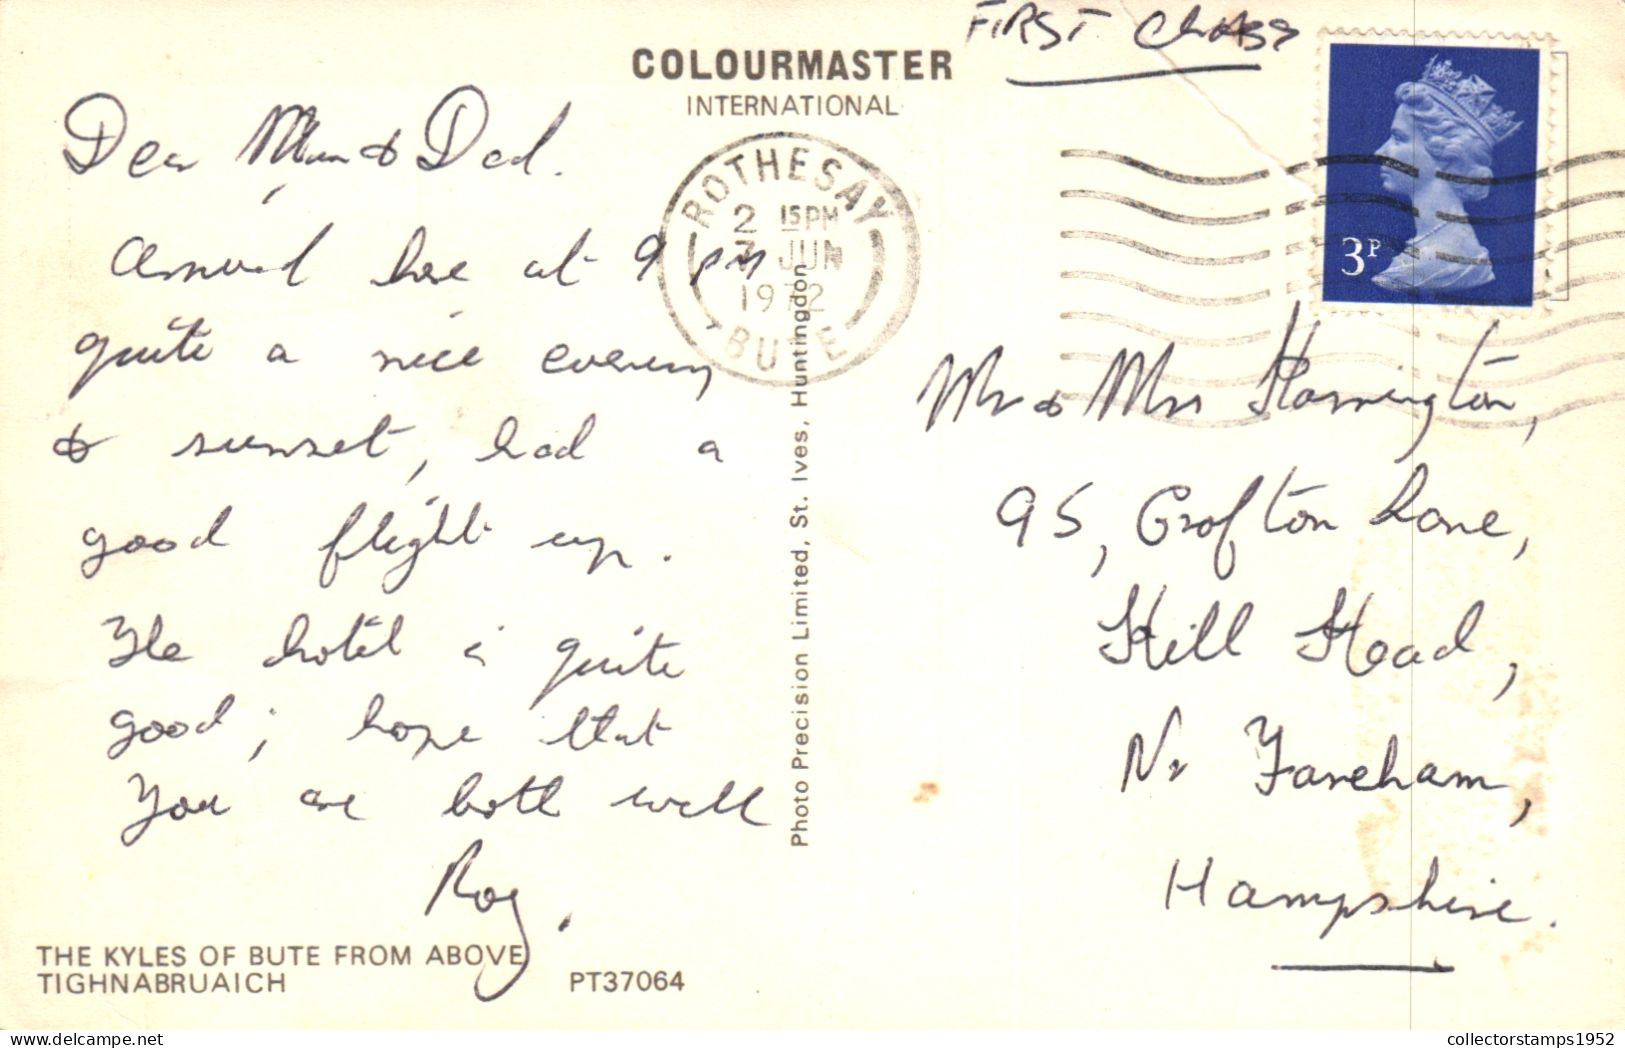 FIRST CLASS
COLOURMASTER
INTERNATIONAL
Dear Mum & Dad.
Arrived here at 9 pm
quite a nice evening
& sunset, had a
good flight up.
The hotel is quite
good; hope that
You are both well
Roy.
THE KYLES OF BUTE FROM ABOVE
TIGHNABRUAICH
PT37064
Photo Precision Limited, St. Ives, Huntingdon
ROTHESAY
2 15PM
JUN
1972
BUTE
3P
Mr & Mrs Harrington,
95, Crofton Lane,
Hill Head,
Nr Fareham,
Hampshire.
collectorstamps1952